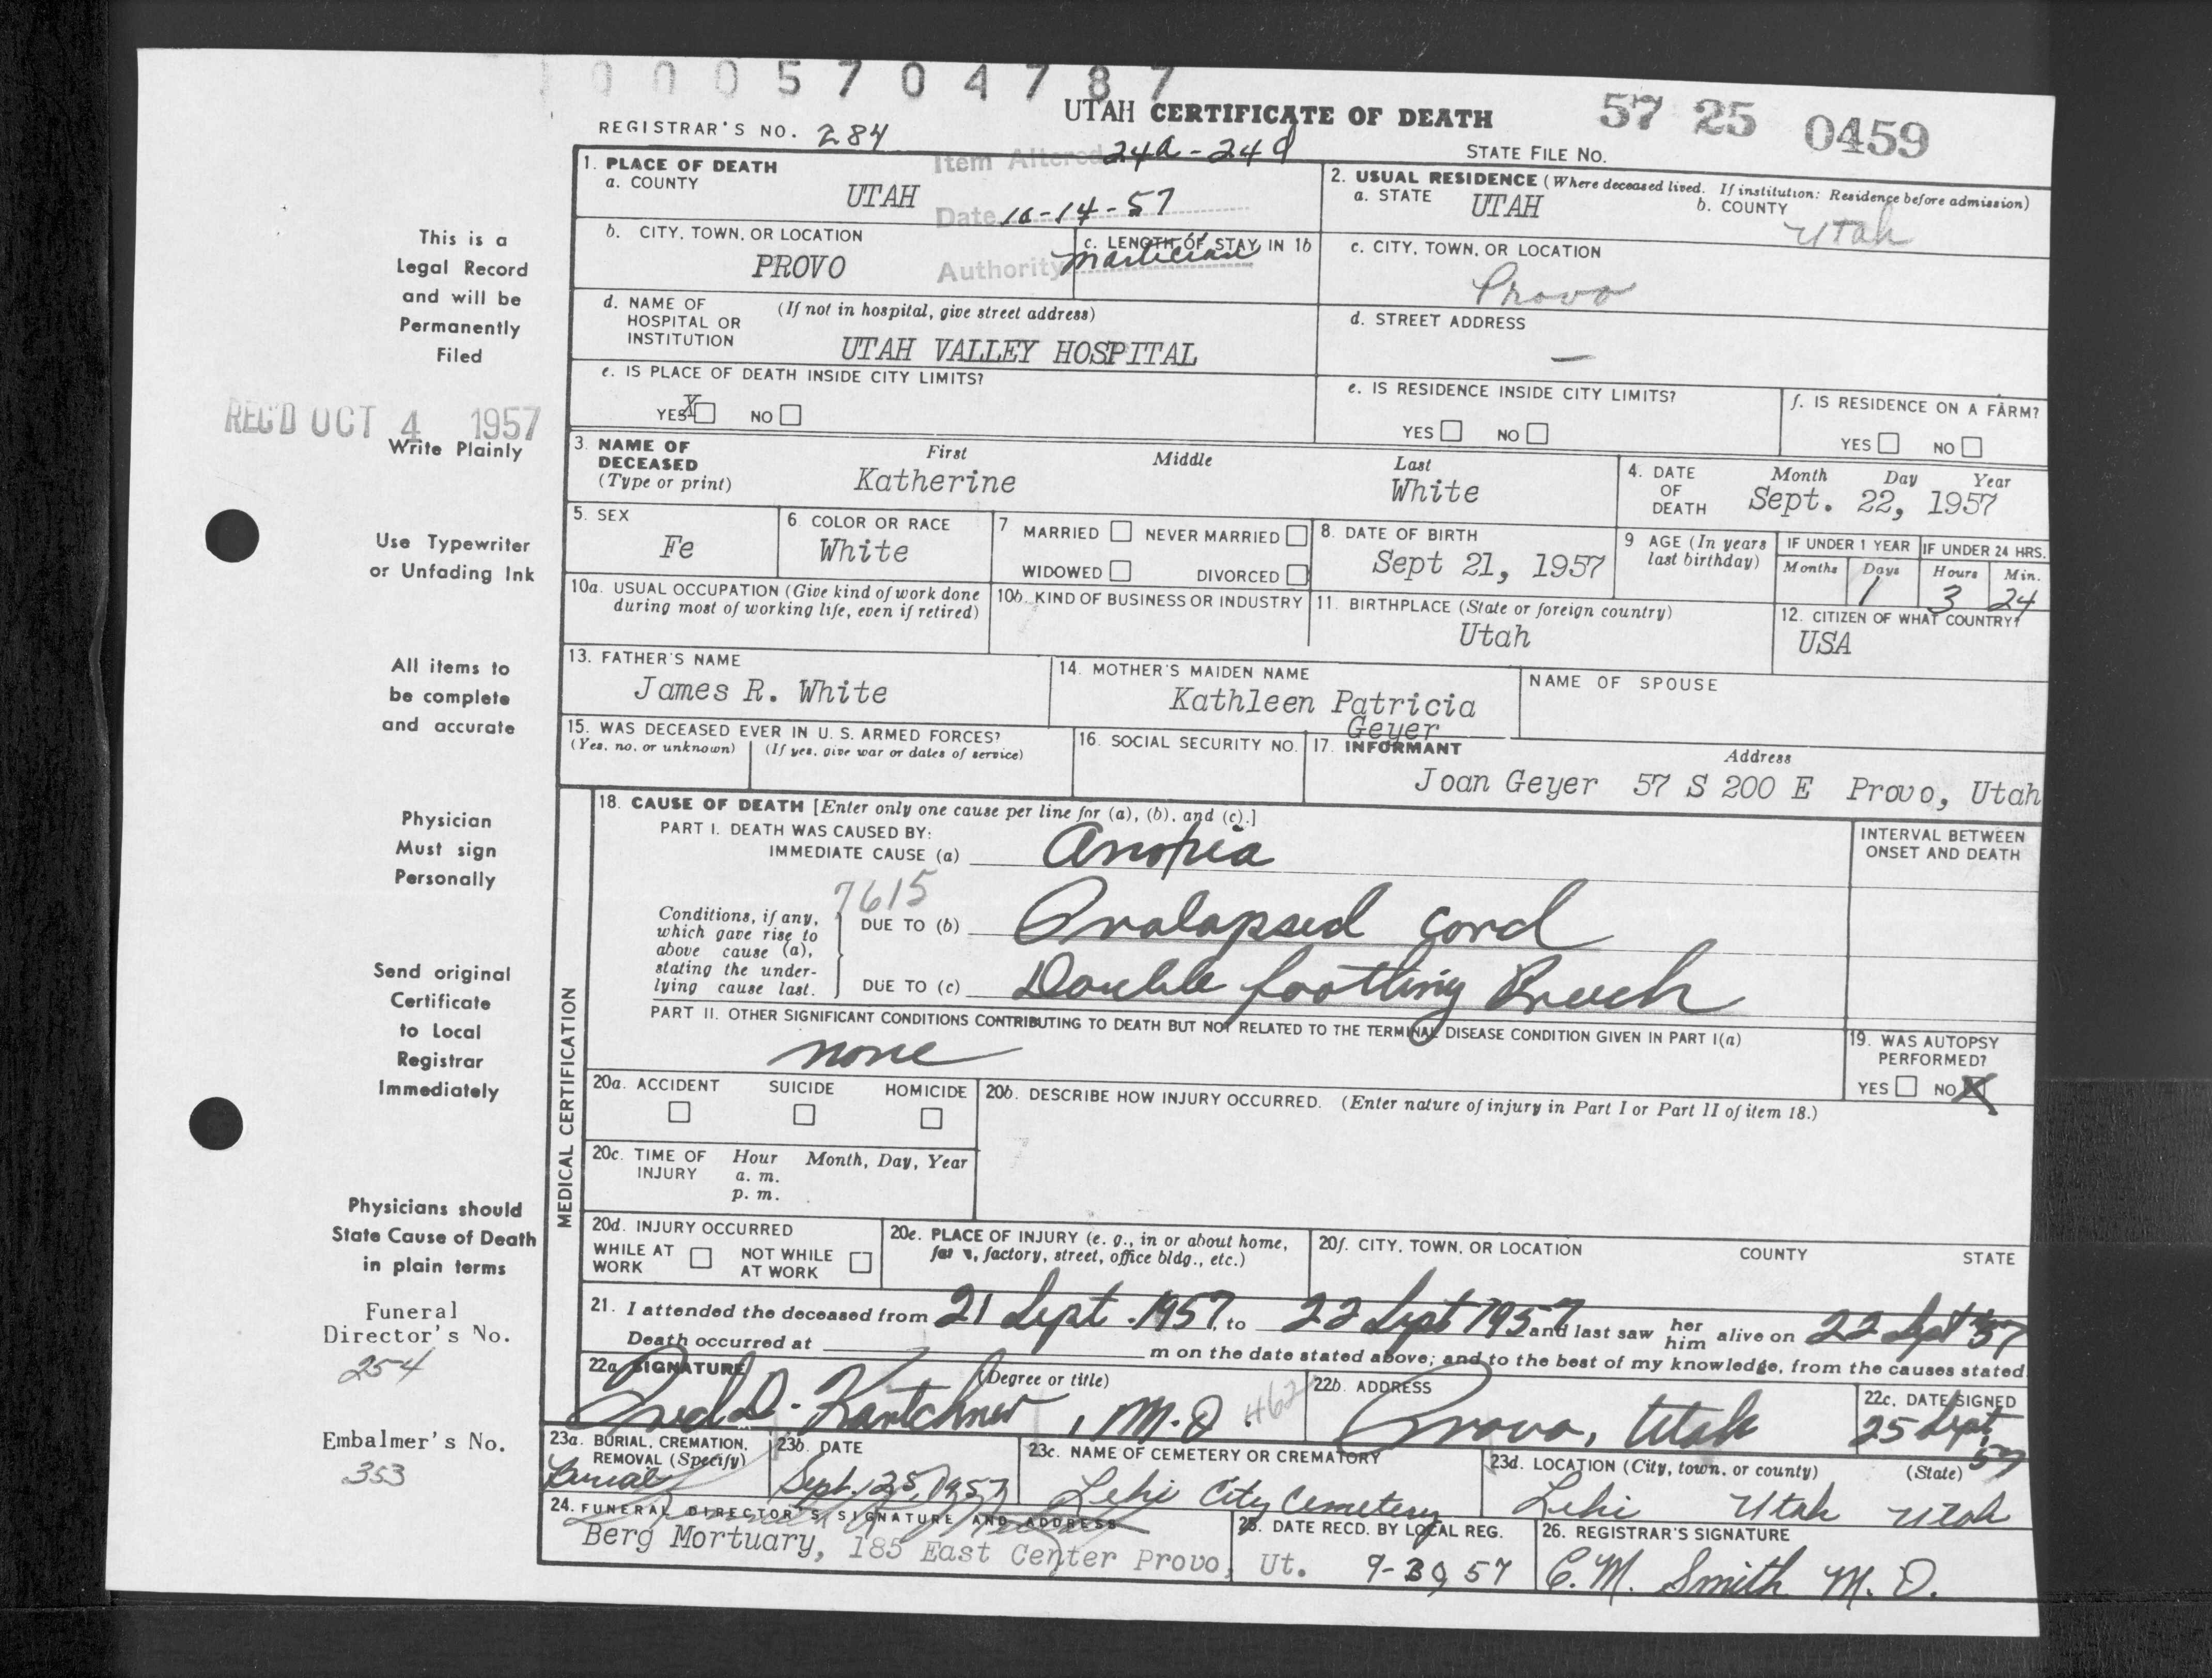 0 0 0 5 7 0 4 7 8 7
UTAH CERTIFICATE OF DEATH
57 25 0459
REGISTRAR'S NO. 284
STATE FILE NO.
Item Altered 24a-24d
Date 10-14-57
Authority Mortician
1. PLACE OF DEATH
a. COUNTY
UTAH
2. USUAL RESIDENCE (Where deceased lived. If institution: Residence before admission)
a. STATE UTAH b. COUNTY Utah
b. CITY, TOWN, OR LOCATION
PROVO
c. LENGTH OF STAY IN 1b
c. CITY, TOWN, OR LOCATION
Provo
d. NAME OF HOSPITAL OR INSTITUTION (If not in hospital, give street address)
UTAH VALLEY HOSPITAL
d. STREET ADDRESS
—
e. IS PLACE OF DEATH INSIDE CITY LIMITS?
YES X NO
e. IS RESIDENCE INSIDE CITY LIMITS?
YES NO
f. IS RESIDENCE ON A FARM?
YES NO
3. NAME OF DECEASED (Type or print)
First Middle Last
Katherine White
4. DATE OF DEATH Month Day Year
Sept. 22, 1957
5. SEX
Fe
6. COLOR OR RACE
White
7 MARRIED NEVER MARRIED
WIDOWED DIVORCED
8. DATE OF BIRTH
Sept 21, 1957
9 AGE (In years last birthday)
IF UNDER 1 YEAR IF UNDER 24 HRS.
Months Days Hours Min.
1 3 24
10a. USUAL OCCUPATION (Give kind of work done during most of working life, even if retired)
10b. KIND OF BUSINESS OR INDUSTRY
11. BIRTHPLACE (State or foreign country)
Utah
12. CITIZEN OF WHAT COUNTRY?
USA
13. FATHER'S NAME
James R. White
14. MOTHER'S MAIDEN NAME
Kathleen Patricia
Geyer
NAME OF SPOUSE
15. WAS DECEASED EVER IN U. S. ARMED FORCES?
(Yes, no, or unknown) (If yes, give war or dates of service)
16. SOCIAL SECURITY NO.
17. INFORMANT Address
Joan Geyer 57 S 200 E Provo, Utah
MEDICAL CERTIFICATION
18. CAUSE OF DEATH [Enter only one cause per line for (a), (b), and (c).]
PART I. DEATH WAS CAUSED BY:
IMMEDIATE CAUSE (a) Anoxia
INTERVAL BETWEEN ONSET AND DEATH
7615
Conditions, if any, which gave rise to above cause (a), stating the underlying cause last.
DUE TO (b) Prolapsed cord
DUE TO (c) Double footling Breech
PART II. OTHER SIGNIFICANT CONDITIONS CONTRIBUTING TO DEATH BUT NOT RELATED TO THE TERMINAL DISEASE CONDITION GIVEN IN PART I(a)
none
19. WAS AUTOPSY PERFORMED?
YES NO X
20a. ACCIDENT SUICIDE HOMICIDE
20b. DESCRIBE HOW INJURY OCCURRED. (Enter nature of injury in Part I or Part II of item 18.)
20c. TIME OF INJURY Hour Month, Day, Year
a. m.
p. m.
20d. INJURY OCCURRED
WHILE AT WORK NOT WHILE AT WORK
20e. PLACE OF INJURY (e. g., in or about home, farm, factory, street, office bldg., etc.)
20f. CITY, TOWN, OR LOCATION COUNTY STATE
21. I attended the deceased from 21 Sept. 1957, to 22 Sept 1957 and last saw her him alive on 22 Sept 57
Death occurred at m on the date stated above; and to the best of my knowledge, from the causes stated
22a. SIGNATURE (Degree or title)
Fred D. Kartchner, M.D. 462
22b. ADDRESS
Provo, Utah
22c. DATE SIGNED
25 Sept, 57
23a. BURIAL, CREMATION, REMOVAL (Specify)
Burial
23b. DATE
Sept. 25, 1957
23c. NAME OF CEMETERY OR CREMATORY
Lehi City Cemetery
23d. LOCATION (City, town, or county) (State)
Lehi Utah Utah
24. FUNERAL DIRECTOR'S SIGNATURE AND ADDRESS
Berg Mortuary, 185 East Center Provo, Ut.
25. DATE RECD. BY LOCAL REG.
9-30 57
26. REGISTRAR'S SIGNATURE
C.M. Smith M. D.
This is a
Legal Record
and will be
Permanently
Filed
REC'D OCT 4 1957
Write Plainly
Use Typewriter
or Unfading Ink
All items to
be complete
and accurate
Physician
Must sign
Personally
Send original
Certificate
to Local
Registrar
Immediately
Physicians should
State Cause of Death
in plain terms
Funeral
Director's No.
254
Embalmer's No.
353